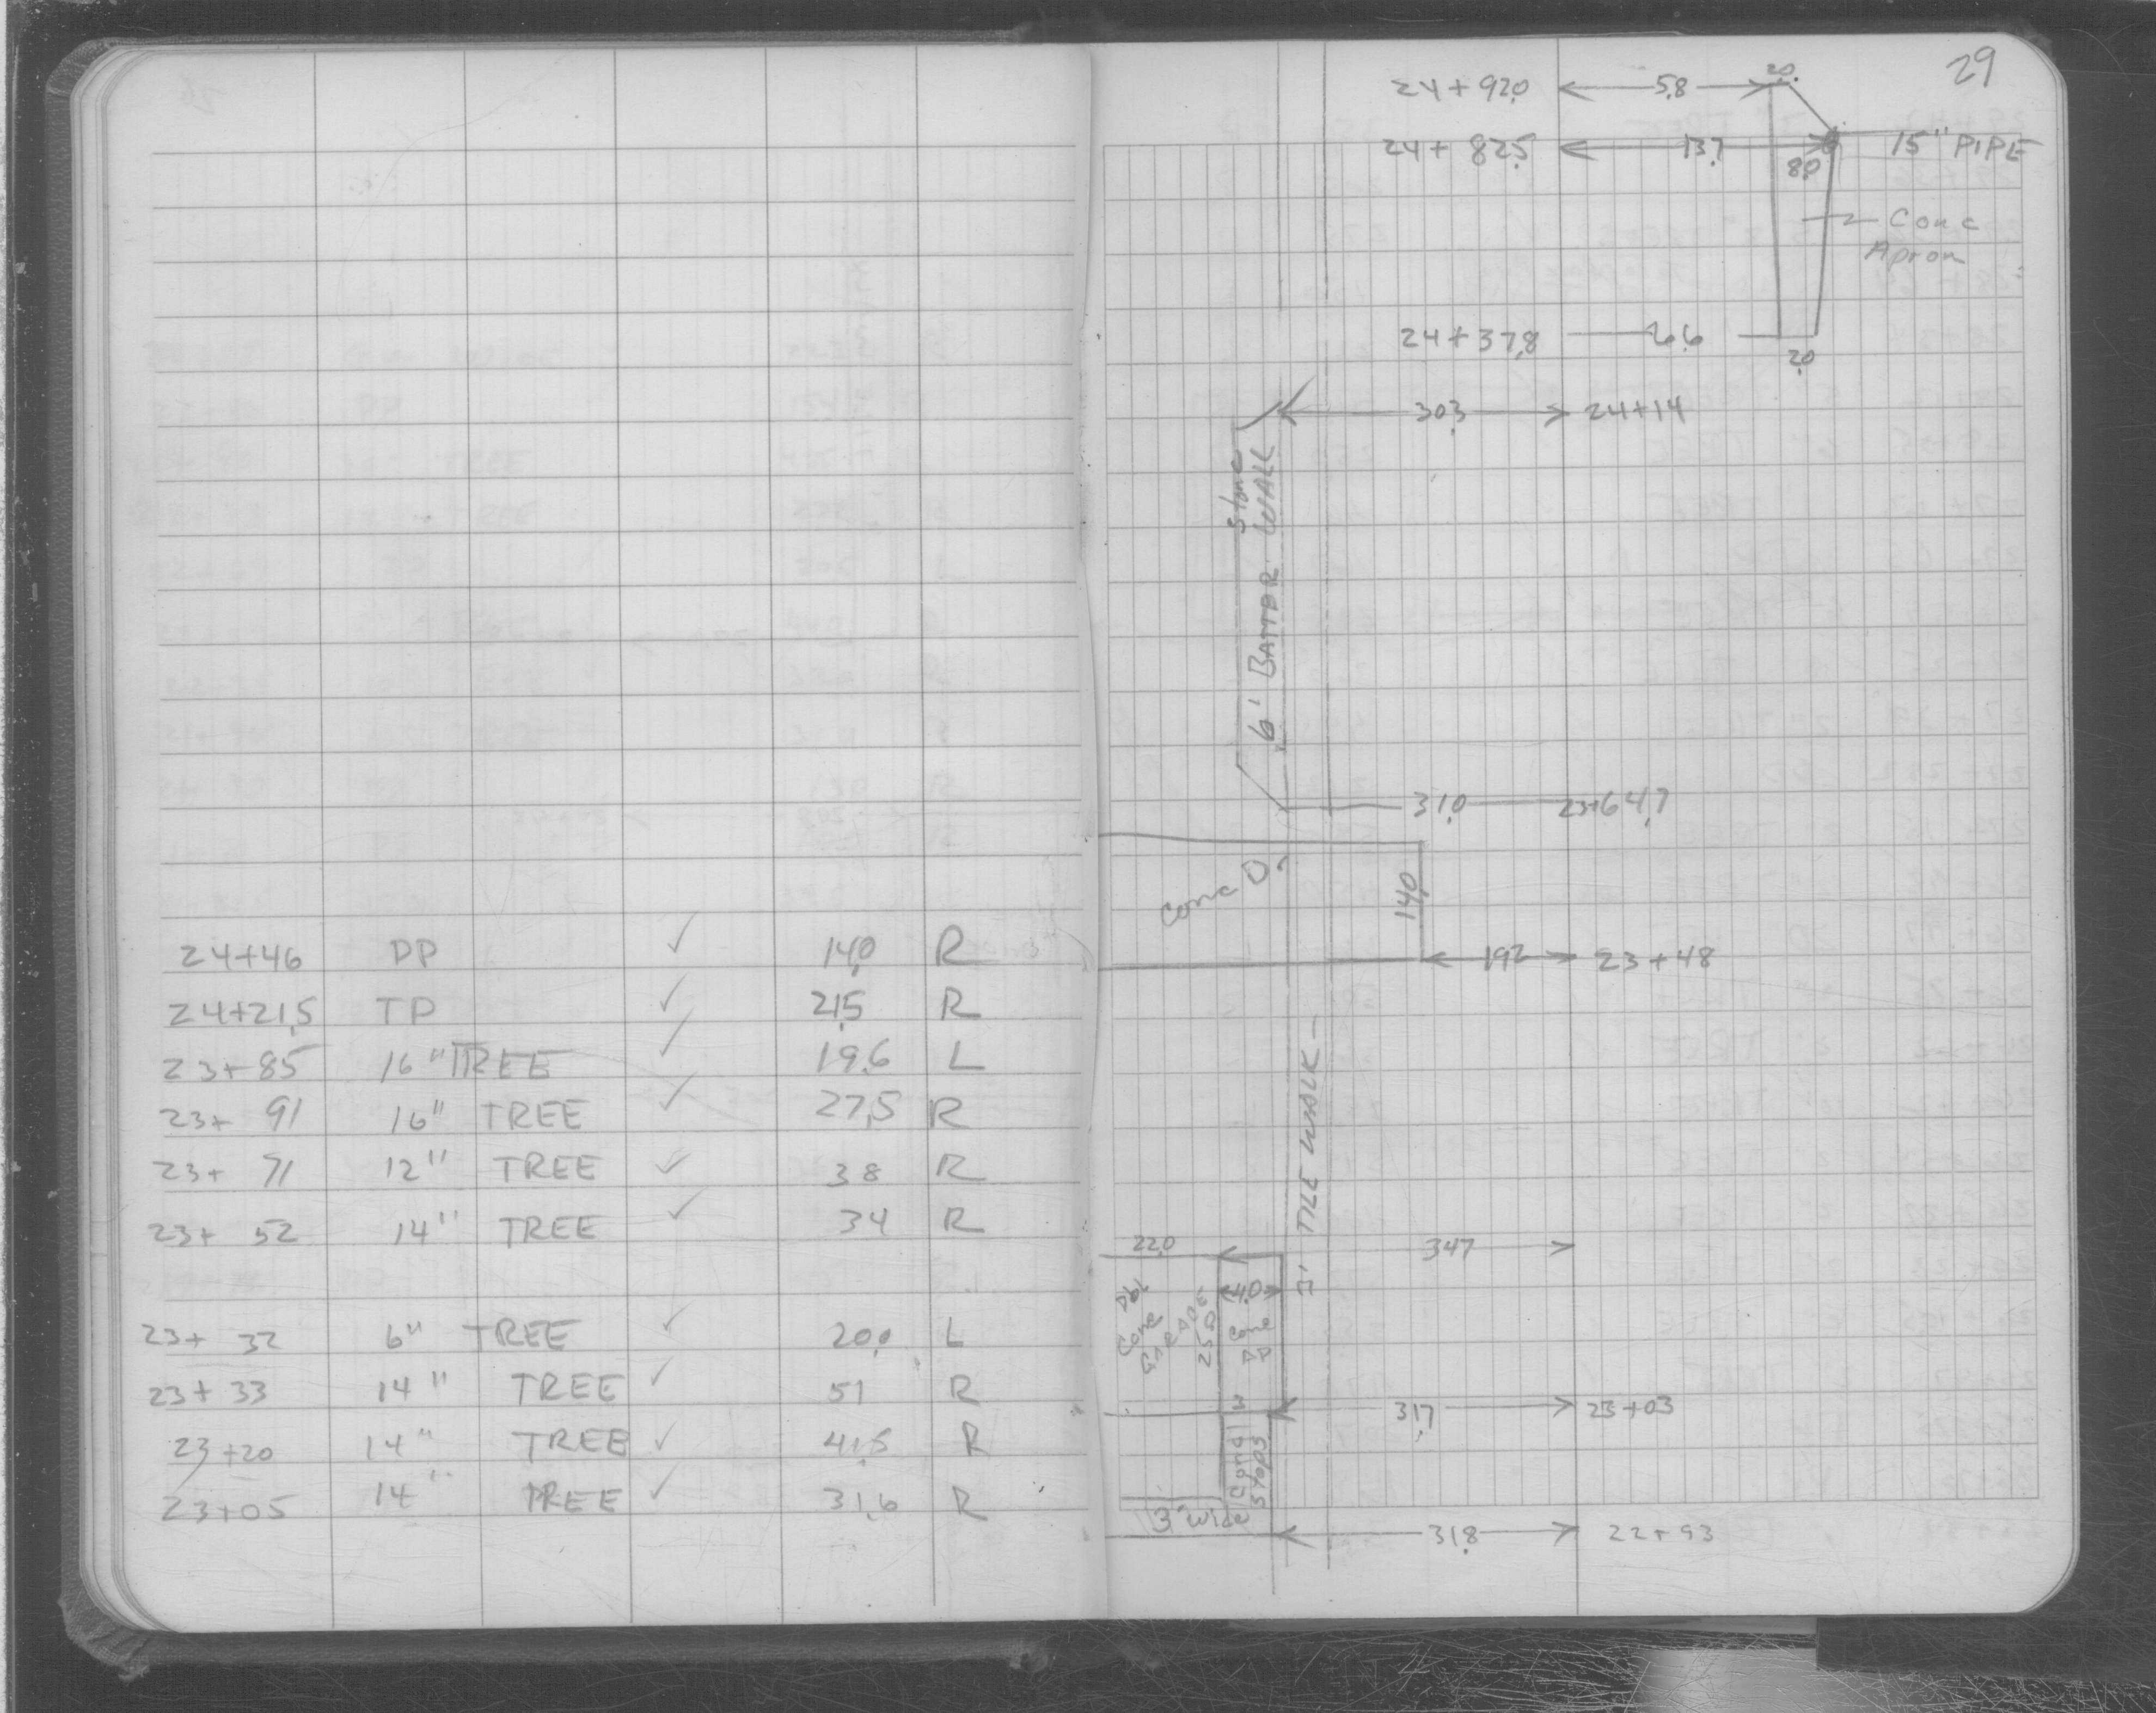 24+46 PP ✓ 14.0 R
24+21.5 TP ✓ 21.5 R
23+85 16" TREE ✓ 19.6 L
23+ 91 16" TREE ✓ 27.5 R
23+ 71 12" TREE ✓ 38 R
23+ 52 14" TREE ✓ 34 R
23+ 32 6" TREE ✓ 20.0 L
23+ 33 14" TREE ✓ 51 R
23+20 14" TREE ✓ 41.5 R
23+05 14" TREE ✓ 31.6 R
29
2.0
24+92.0 5.8
24+ 82.5 13.7 15" PIPE
8.0
Conc
Apron
24+37.8 6.6
2.0
30.3 24+14
Stone
6' BATTER WALL
31.0 23+64.7
Conc D.
14.0
19.2 23+48
TILE WALK
22.0 34.7
4.0
Conc
25.0
Conc
3
31.7 23+03
Conc
Steps
3' wide
31.8 22+93